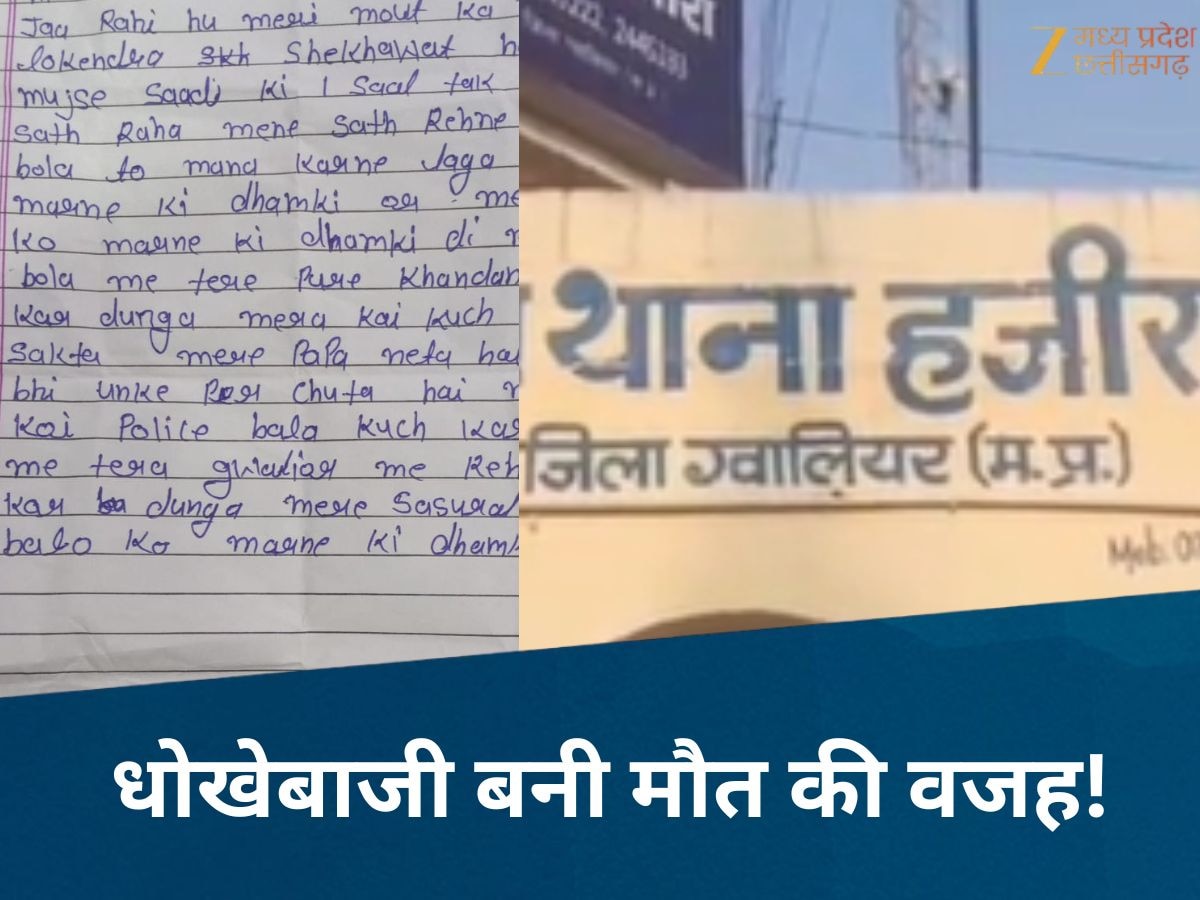 Jaa Rahi hu meri mout ka
lokendra Shekhawat h
mujse Saadi ki 1 Saal tak
Sath Raha mene Sath Rehne
bola to mana Karne laga
marne ki dhamki or me
ko marne ki dhamki di
bola me tere Pure Khandan
kar dunga mera kai kuch
Sakta mere PaPa neta ha
bhi unke Per Chuta hai
Koi Police bala kuch kar
me tera gwaliar me Reh
kar dunga mere Sasural
balo ko marne ki dhamk
0222, 2445233
थाना हजीर
जिला ग्वालियर (म.प्र.)
Mob. 07
Z मध्य प्रदेश
छत्तीसगढ़
धोखेबाजी बनी मौत की वजह!